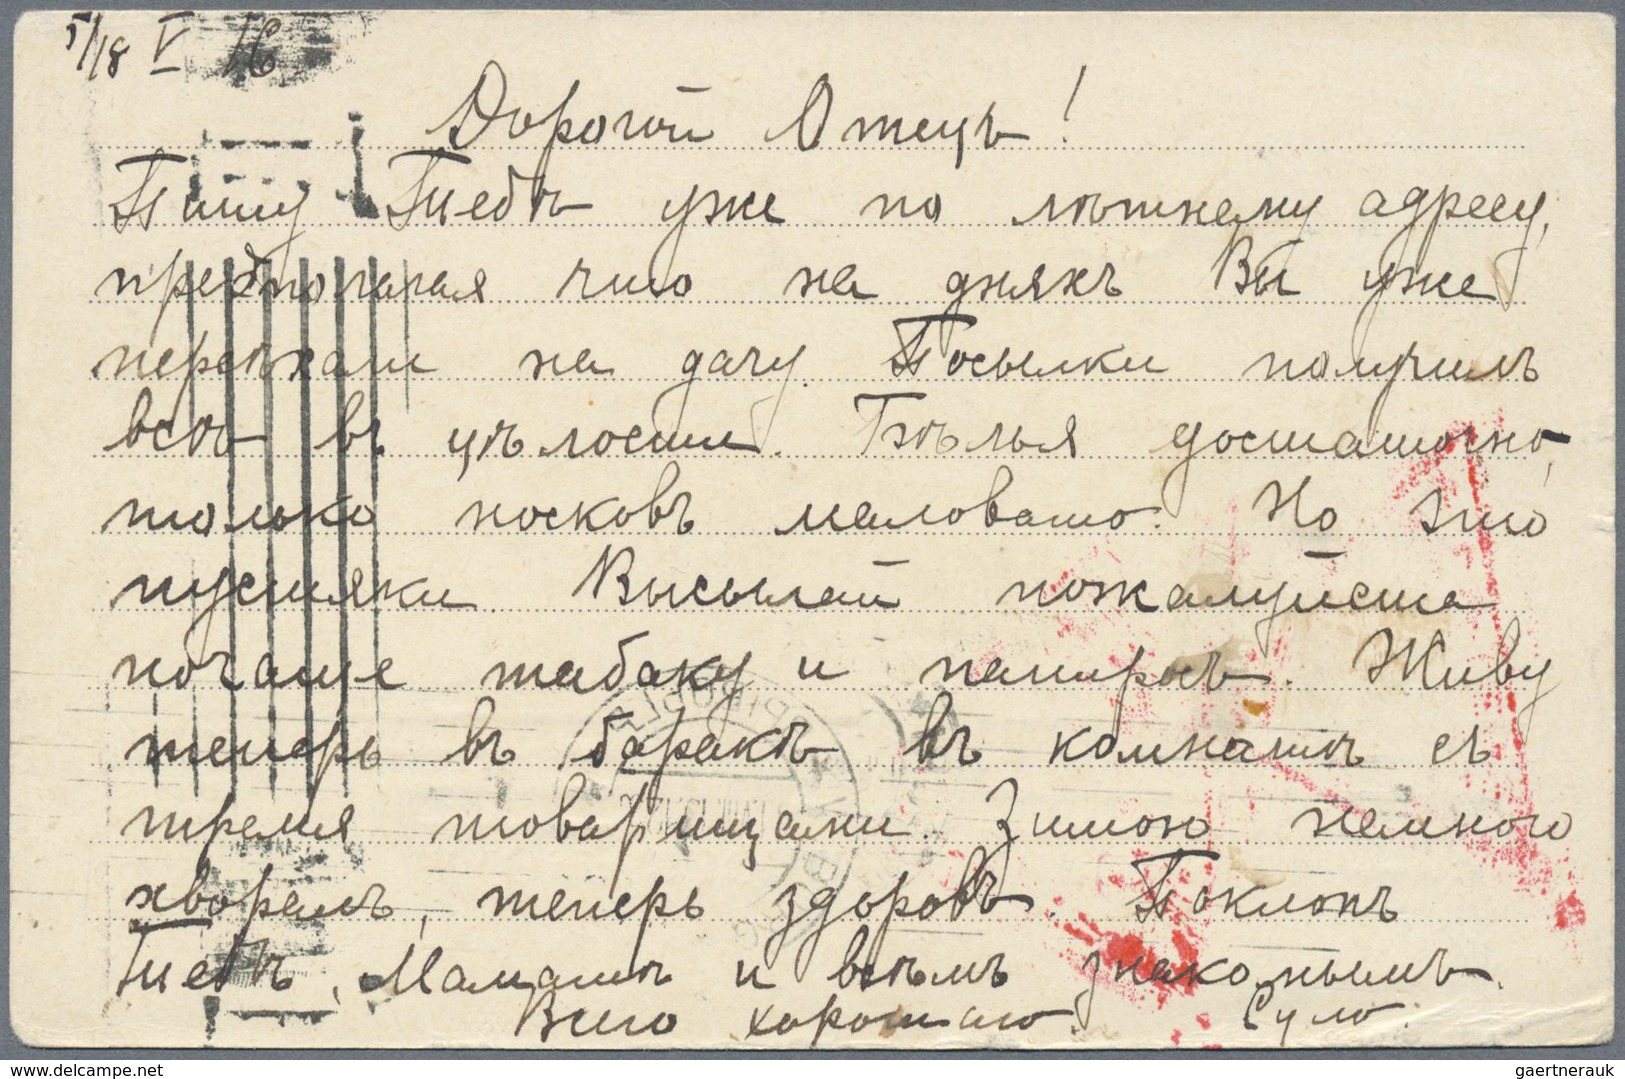 5/18 V 16
Дорогой Отецъ!
Пишу Тебѣ уже по лѣтнему адресу,
предполагая что на дняхъ Вы уже
переѣхали на дачу. Посылки получилъ
всѣ въ цѣлости. Бѣлья достаточно,
только носковъ маловато. Но это
пустяки. Высылай пожалуйста
почаще табаку и папиросъ. Живу
теперь въ баракѣ въ комнатѣ съ
тремя товарищами. Зимою немного
хворалъ, теперь здоровъ. Поклонъ
Тебѣ, Мамашѣ и всѣмъ знакомымъ.
Всего хорошаго.
gaertnerauk